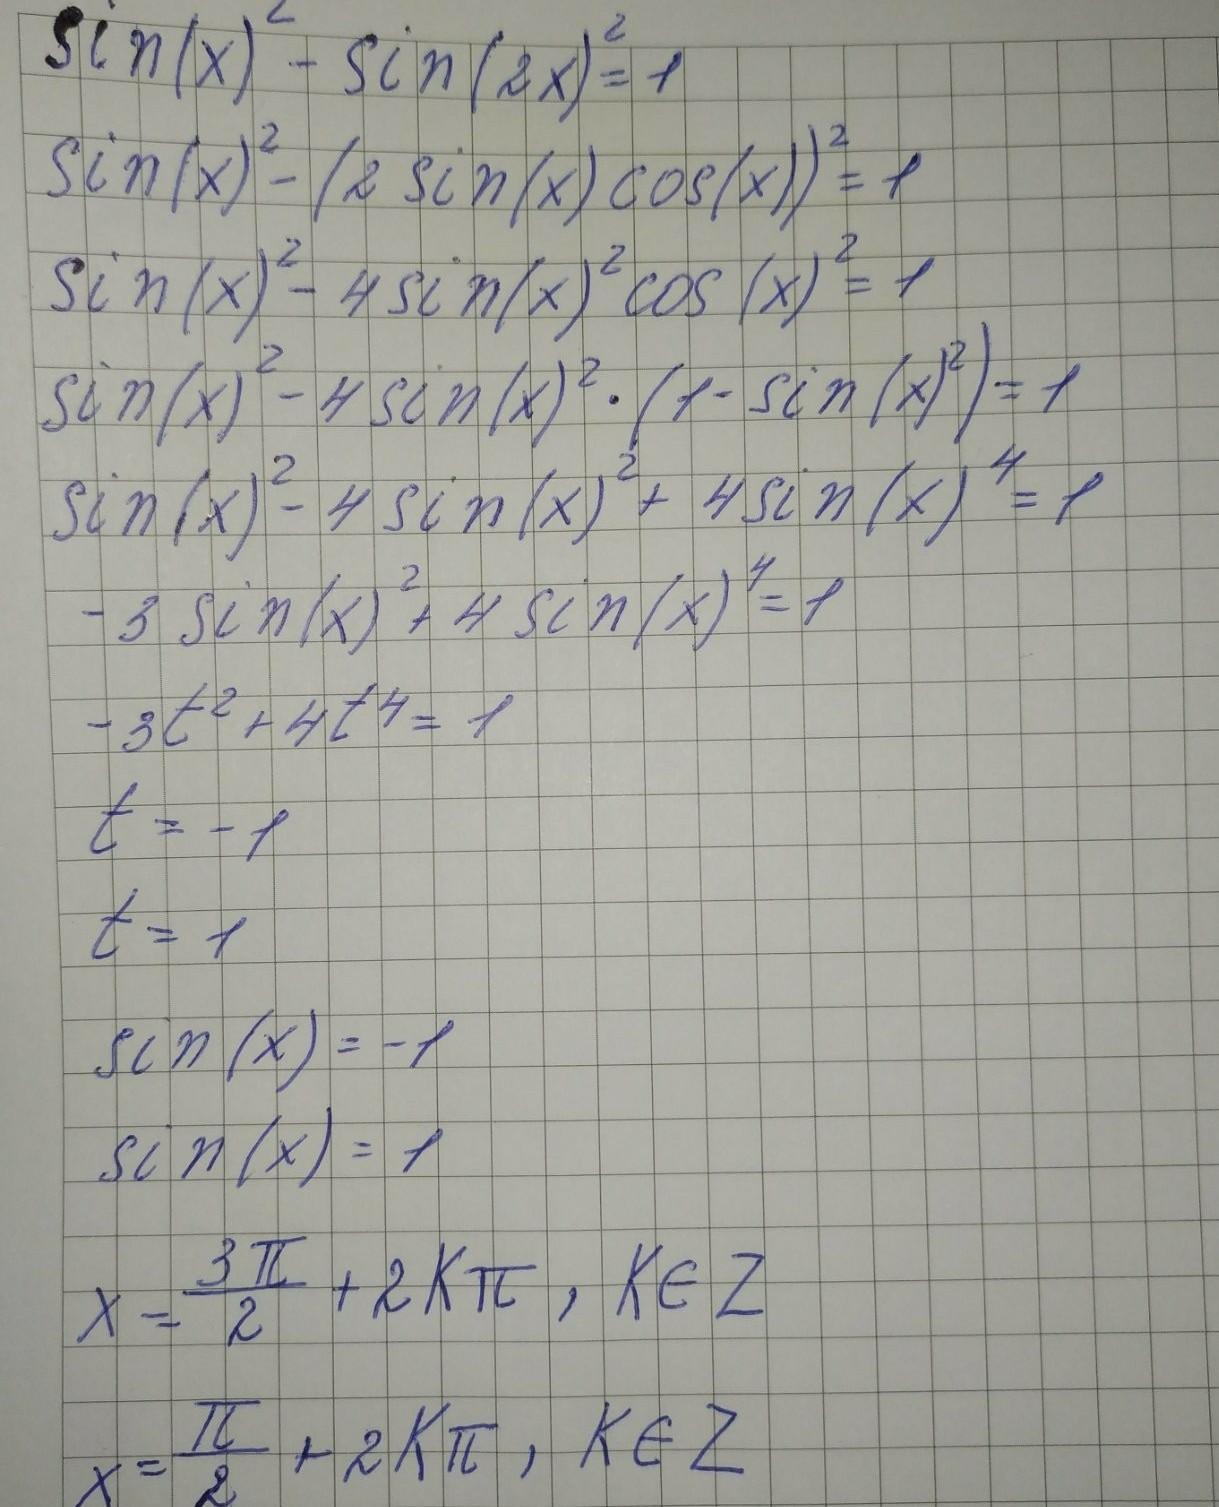 sin(x)² - sin(2x)² = 1
sin(x)² - (2 sin(x) cos(x))² = 1
sin(x)² - 4 sin(x)² cos(x)² = 1
sin(x)² - 4 sin(x)² · (1 - sin(x)²) = 1
sin(x)² - 4 sin(x)² + 4 sin(x)⁴ = 1
-3 sin(x)² + 4 sin(x)⁴ = 1
-3t² + 4t⁴ = 1
t = -1
t = 1
sin(x) = -1
sin(x) = 1
x = 3π/2 + 2Kπ, K∈Z
x = π/2 + 2Kπ, K∈Z